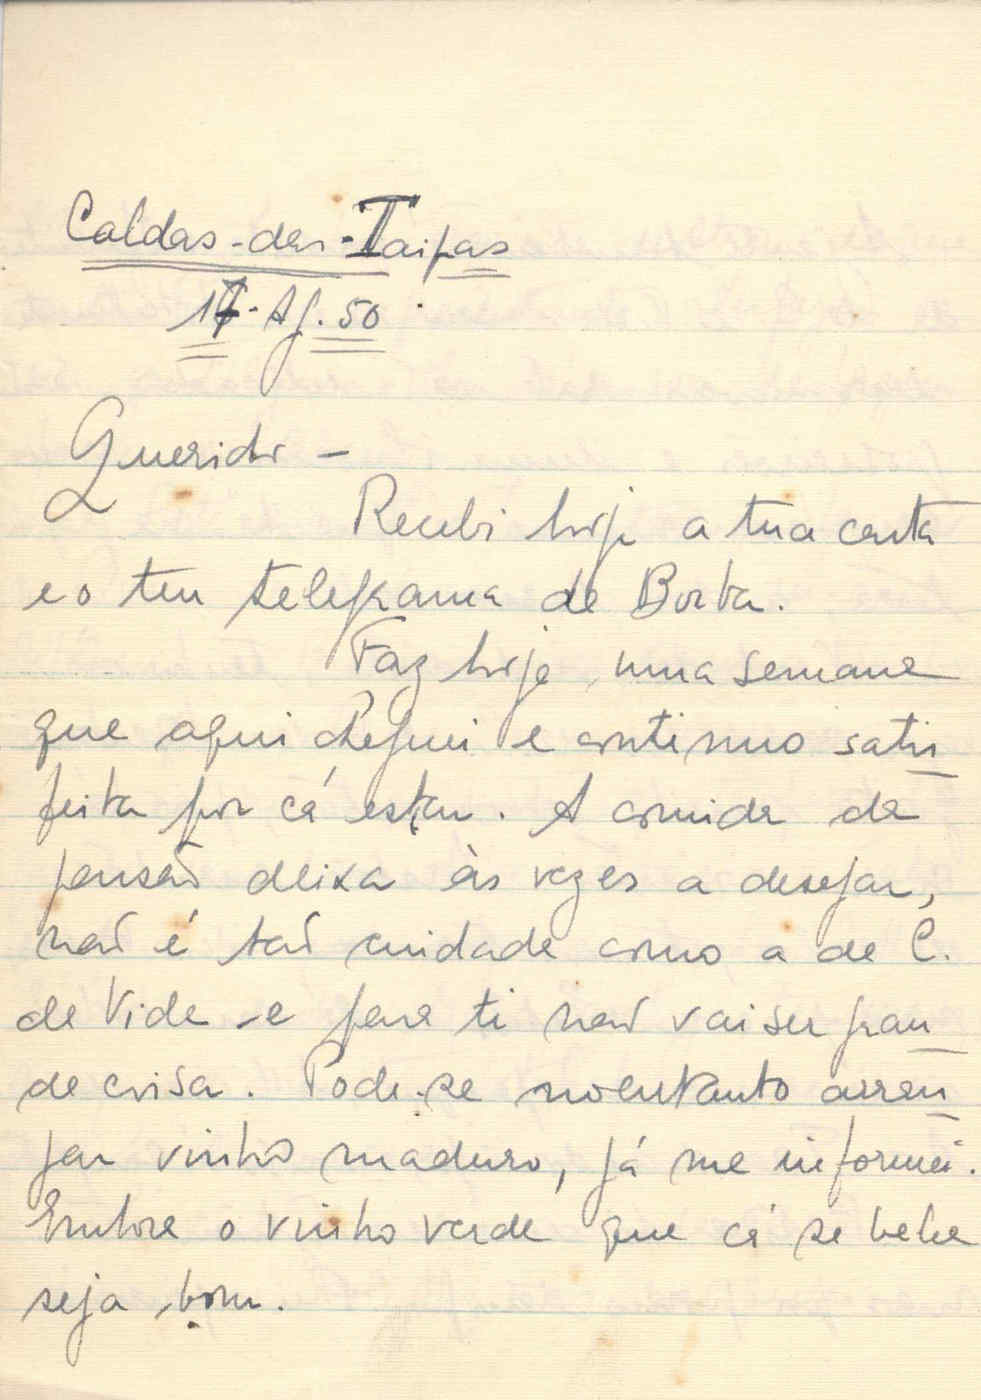 Caldas-das-Taipas
17-Ag. 50
Querido -
Recebi hoje a tua carta
e o teu telegrama de Borba.
Faz hoje uma semana
que aqui cheguei e continuo satis
feita por cá estar. A comida da
pensão deixa às vezes a desejar,
não é tão cuidada como a de C.
de Vide - e para ti não vai ser gran
de coisa. Pode-se no entanto arran
jar vinho maduro, já me informei.
Embora o vinho verde que cá se bebe
seja bom.